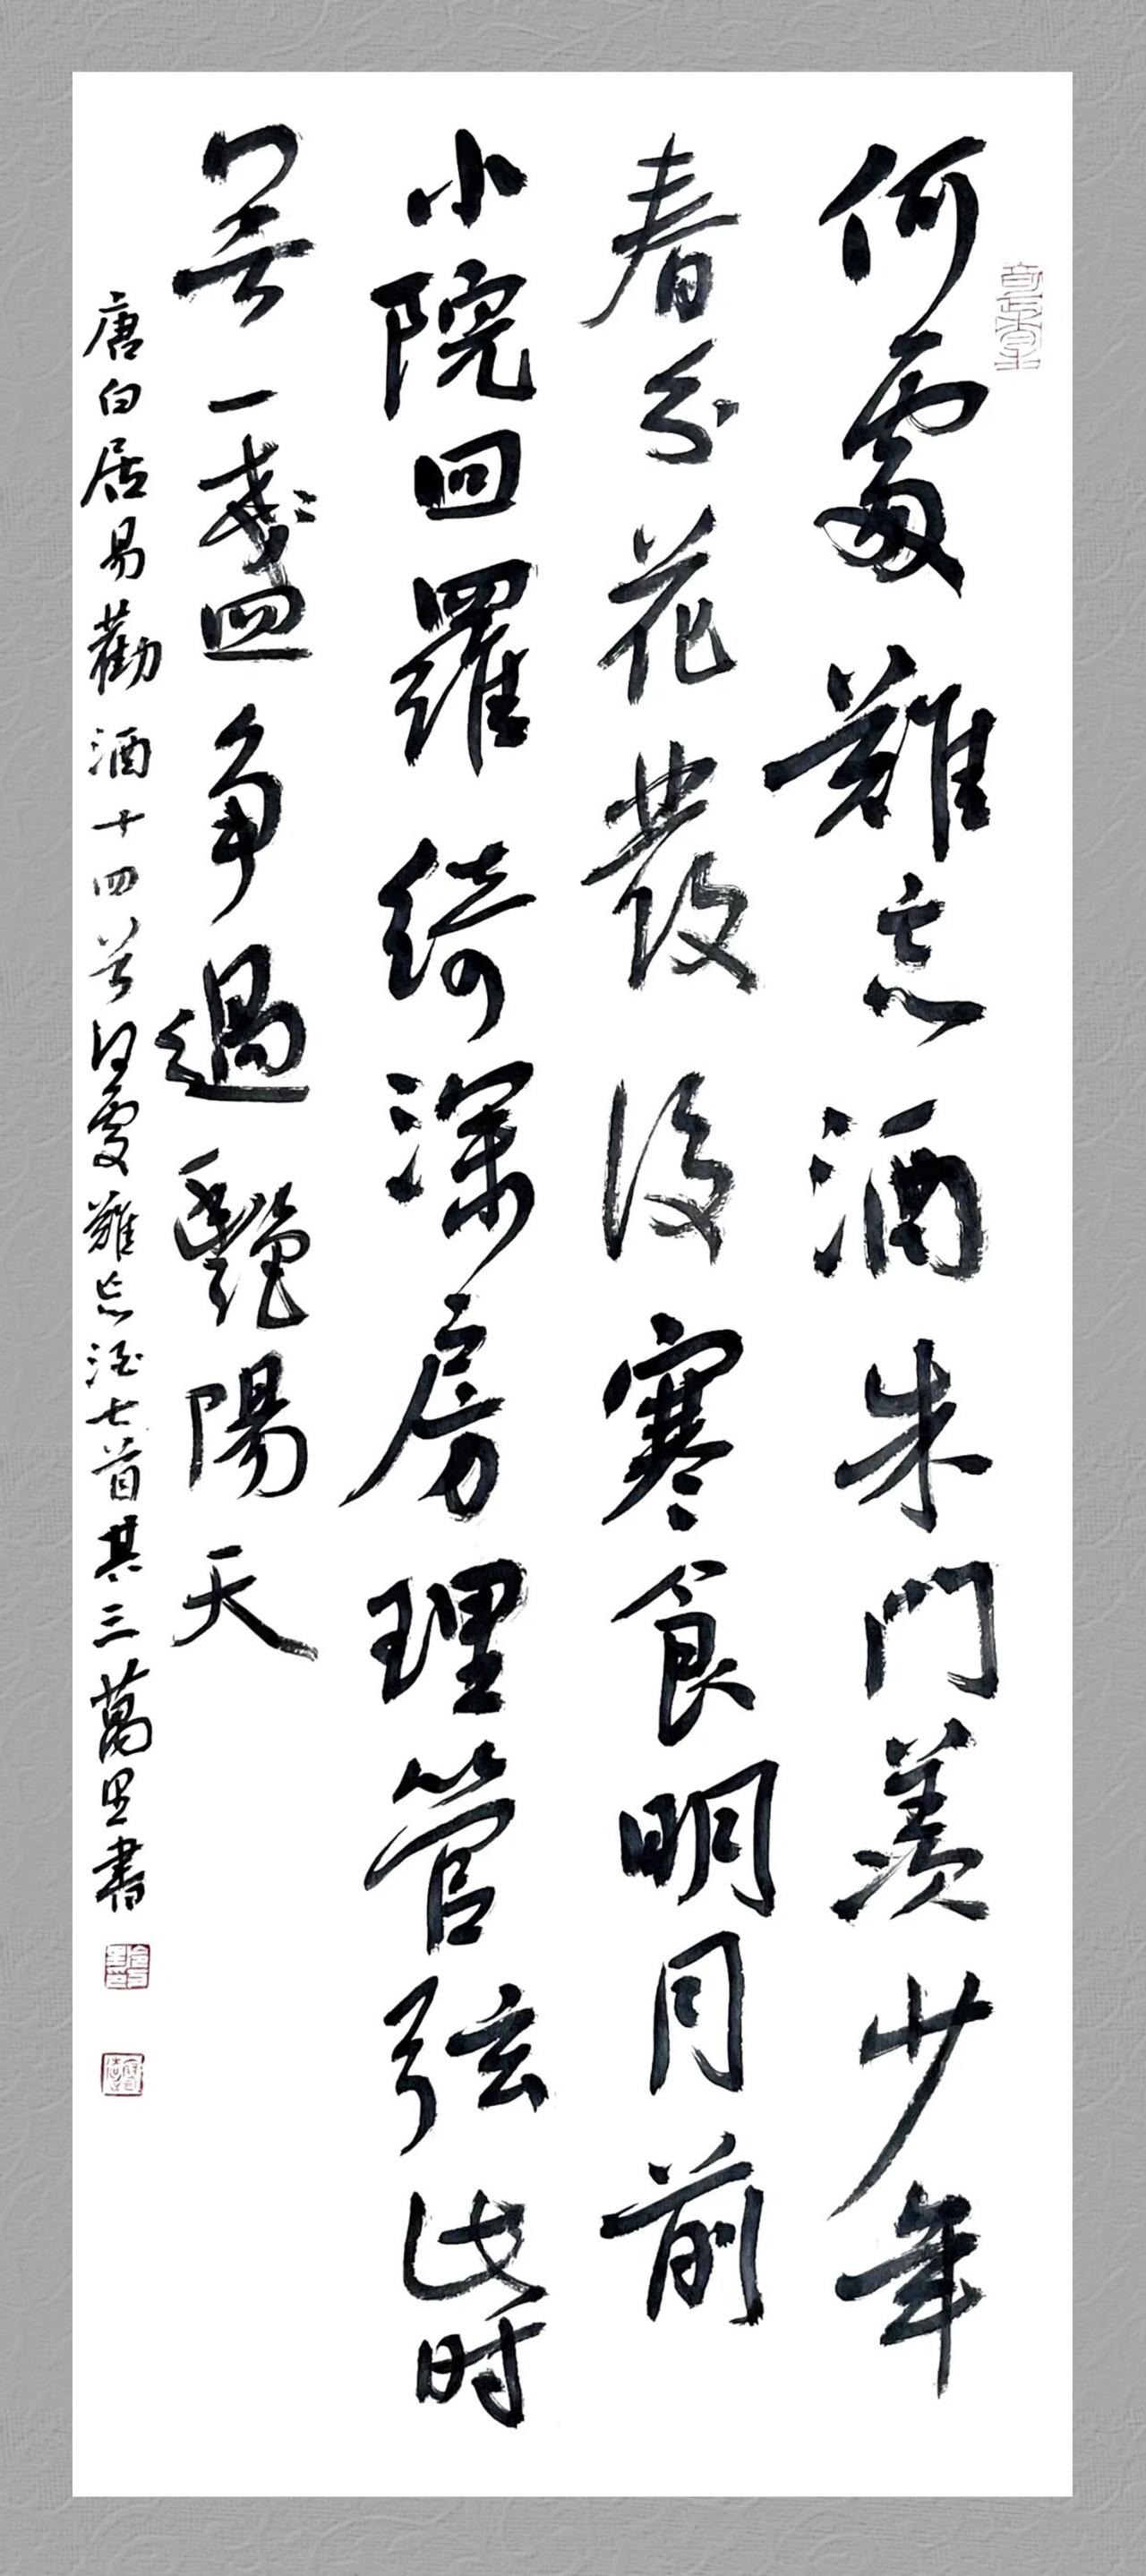 何處難忘酒朱門羨少年
春分花發後寒食明月前
小院回羅綺深房理管弦此时
若無一盞争過艷陽天
唐白居易勸酒十四首何處難忘酒七首其三萬里書